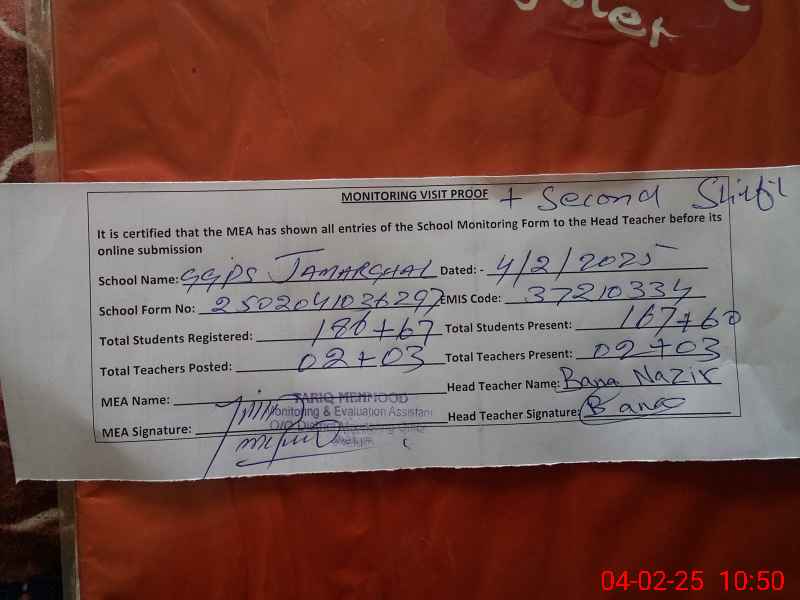 MONITORING VISIT PROOF + Second Shift
It is certified that the MEA has shown all entries of the School Monitoring Form to the Head Teacher before its
online submission
School Name: GGPS JAMARGHAL Dated: - 4/2/2025
School Form No: 2502041036297 EMIS Code: 37210334
Total Students Registered: 186+67 Total Students Present: 167+60
Total Teachers Posted: 02+03 Total Teachers Present: 02+03
MEA Name: Head Teacher Name: Bana Nazir
TARIQ MEHMOOD
Monitoring & Evaluation Assistant
O/O District Monitoring Officer
MEA Signature: Head Teacher Signature: Banoo
04-02-25 10:50